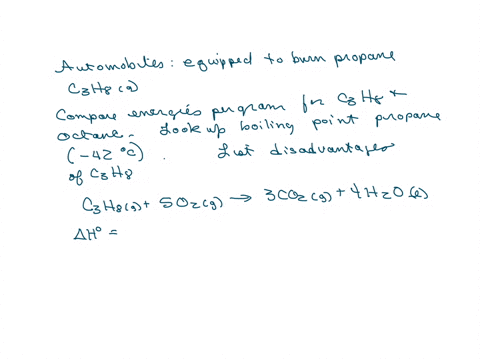 Automobiles: equipped to burn propane
C3H8(g)
Compare energies per gram for C3H8 +
octane. Look up boiling point propane
(-42 °C). List disadvantages
of C3H8
C3H8(g) + 5O2(g) → 3CO2(g) + 4H2O(l)
ΔH° =